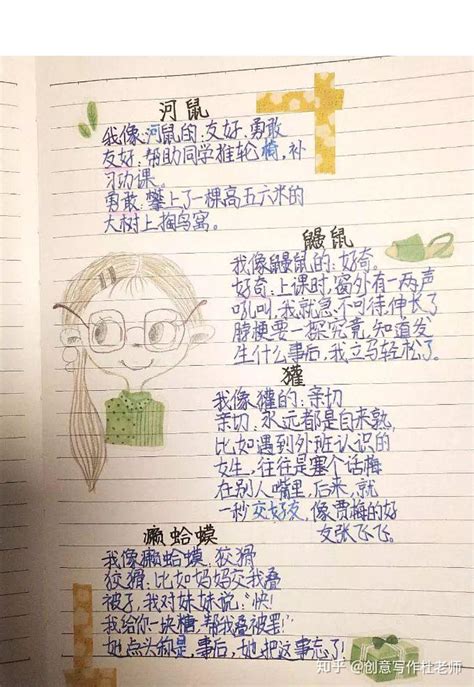 河鼠
我像河鼠的:友好,勇敢
友好:帮助同学推轮椅,补
习功课。
勇敢:攀上了一棵高五六米的
大树上掏鸟窝。
鼹鼠
我像鼹鼠的:好奇。
好奇:上课时,窗外有一两声
吼叫,我就急不可待,伸长了
脖梗要一探究竟,知道发
生什么事后,我立马轻松了。
獾
我像獾的:亲切
亲切:永远都是自来熟,
比如遇到外班认识的
女生,往往是塞个话梅
在别人嘴里,后来,就
一秒交好友,像贾梅的好
友张飞飞。
癞蛤蟆
我像癞蛤蟆:狡猾
狡猾:比如妈妈交我叠
被了,我对妹妹说:“快!
我给你一块糖,帮我叠被罢!”
她点头称是,事后,她把这事忘了!
知乎 @创意写作杜老师